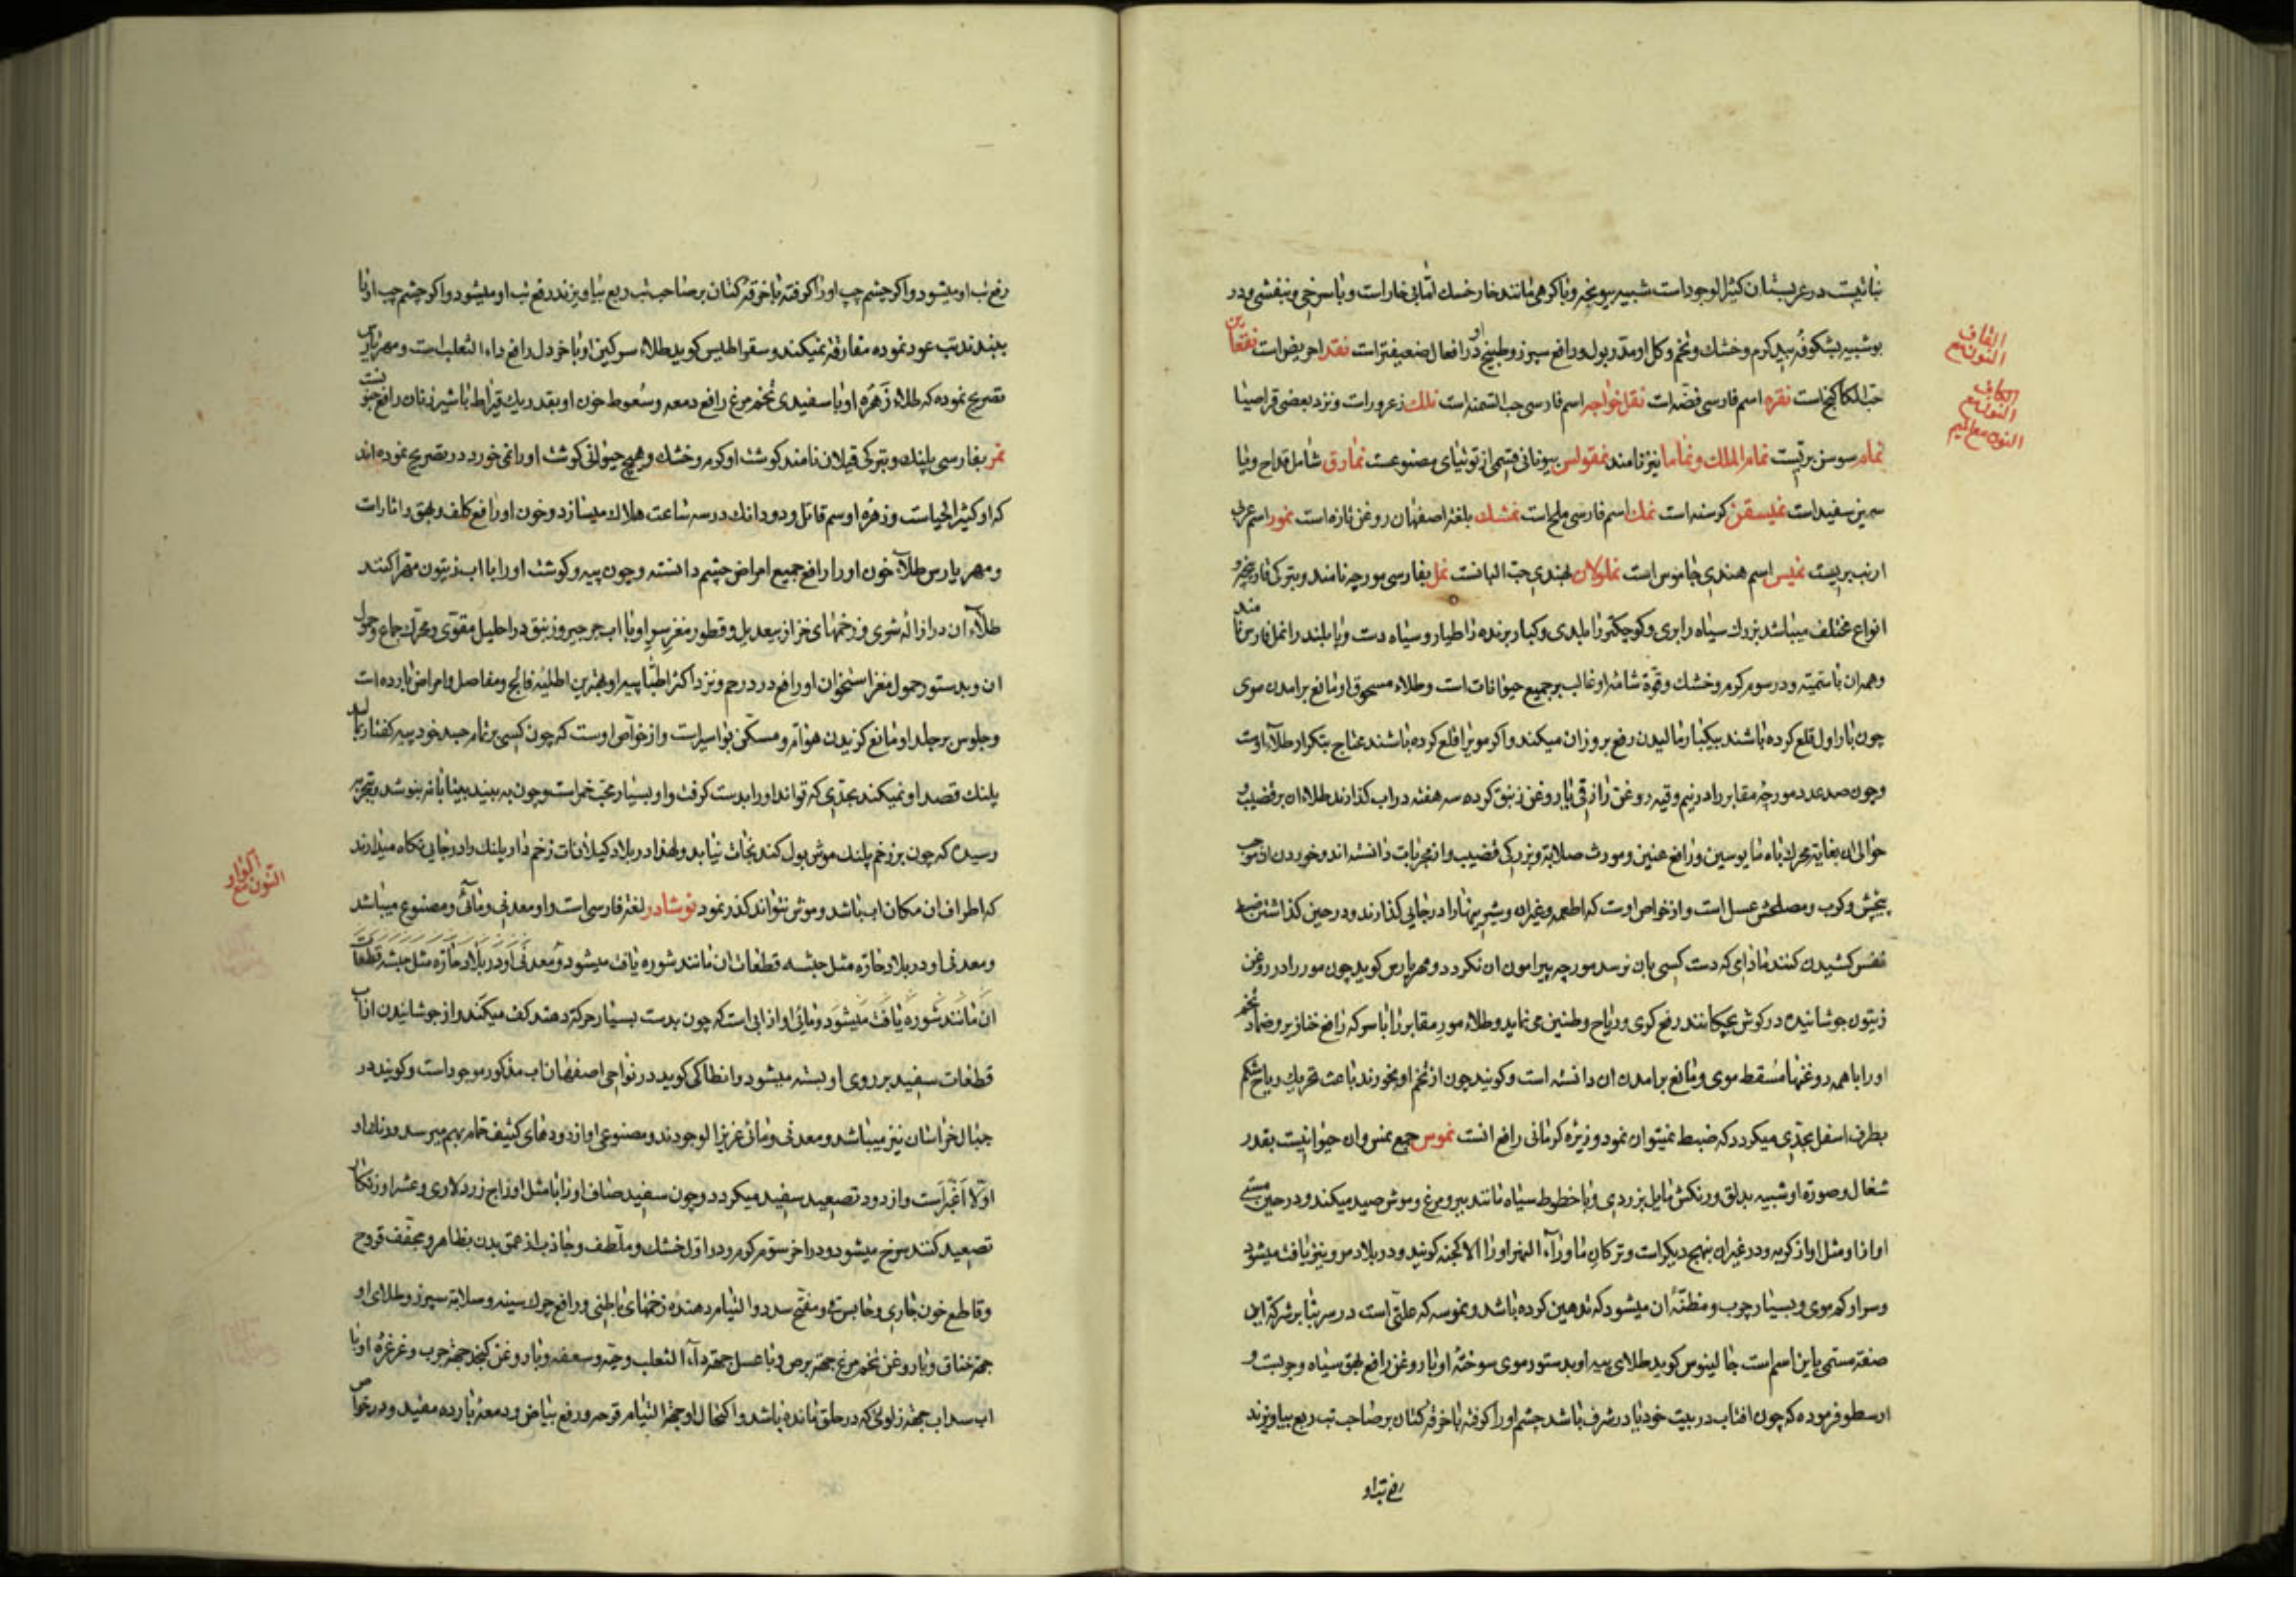 نباتیست در عربستان کثیر الوجود است شبیه ببونجه و با کرهی مانند خارخسک اما بی خار است و با سرخی و بنفشی و در
بو شبیه بشکوفه بید کرم و خشک و تخم و کل او مدر بول و رافع سپرز و طبیخ او در افعال ضعیفتر است نقد احریض است نقعا ین
النون مع القاف
حب الکاکنج است نقره اسم فارسی فضه است نقل خواجه اسم فارسی حب السمنه است نلک زعرور است و نزد بعضی قراصیا
النون مع الکاف
نمام سوسن بریست نمام الملک و نماما نیز نامند نمقولس بیونانی قسمی از توتیای مصنوعست نمارق شامل قداح و نیا
النون مع المیم
سمین سفید است نمیسقن کرسنه است نمک اسم فارسی ملح است نمشک بلغة اصفهان روغن تازه است نمور اسم عربی
ارنب بریست نمیس اسم هندی جاموس است نملولان بهندی حب البانست نمل بفارسی مورچه نامند و بترکی قارنجه و
انواع مختلف میباشد بزرک سیاه را بری و کوچکتر را بلدی و کبار پرنده را طیار و سیاه دست و پا بلند را نمل فارس نا مند
و همه ان با سمیته و در سوم کرم و خشک و قوة شامه او غالب بر جمیع حیوانات است و طلاء مسحوق او مانع برامدن موی
چون بار اول قلع کرده باشند بیکبار مالیدن رفع بروز ان میکند و اکر مو را قلع کرده باشند محتاج بتکرار طلاء اوست
و چون صد عدد مورچه مقابر را در نیم وقیه روغن رازقی یا روغن زنبق کرده سه هفته در اب کذارند طلاء ان بر قضیب و
حوالی ان بغایة محرک باه مایوسین و رافع عنین و مورث صلابة و بزرکی قضیب و از مجربات دانسته اند و خوردن ان موجب
پیچش و کرب و مصلحش عسل است و از خواص اوست که اطعمه و غیر ان و شیرینیها را در جایی کذارند و در حین کذاشتن ضبط
نفس کشیدن کنند مادامی که دست کسی بان نرسد مورچه پیرامون ان نکردد و مهریارس کوید چون مور را در روغن
زیتون جوشانیده در کوش بچکانند رفع کری و ریاح و طنین می نماید و طلاء مور مقابر را با سرکه رافع خنازیر و ضماد تخم
او را با همه روغنها مسقط موی و مانع برامدن ان دانسته است و کویند چون از تخم او بخورند باعث تحریک ریاح شکم
بطرف اسفل بحدی میکردد که ضبط نمیتوان نمود و زیره کرمانی رافع انست نموس جمع نمس و ان حیوانیست بقدر
شغال و صورة او شبیه بدلق و رنکش مایل بزردی و با خطوط سیاه مانند ببر و مرغ و موش صید میکند و در حین مستی
اواز او مثل اواز کربه و در غیر ان بنهج دیکر است و ترکان ماوراء النهر او را الا کجنه کویند و در بلاد مرو نیز یافت میشود
و سر او کم موی و بسیار چرب و مظنه ان میشود که تدهین کرده باشد و نموسه که علتی است در سر بنا بر شرکة این
صفة مسمی باین اسم است جالینوس کوید طلای پیه او بدستور موی سوخته او با روغن رافع بهق سیاه و جربست و
ارسطو فرموده که چون افتاب در بیت خود یا در شرف باشد چشم او را کوفته با خرقه کتان بر صاحب تب ربع بیاویزند
رفع تب او
رفع تب او میشود و اکر چشم چپ او را کوفته با خرقه کتان بر صاحب تب ربع بیاویزند رفع تب او میشود و اکر چشم چپ او را
ببندند تب عود نموده مفارقة نمیکند و سقراطیس کوید طلاء سرکین او با خردل رافع داء الثعلب است و مهریارس
تصریح نموده که طلاء زهره او با سفیدی تخم مرغ رافع دمعه و سعوط خون او بقدر یک قیراط با شیر زنان رافع جنو نست
نمر بفارسی پلنک و بترکی قپلان نامند کوشت او کرم و خشک و هیچ حیوانی کوشت او را نمی خورد در تصریح نموده اند
که او کثیر الحیاست و زهره او سم قاتل و دو دانک در سه ساعت هلاک میسازد و خون او رافع کلف و بهق و اثار است
و مهریارس طلاء خون او را رافع جمیع امراض چشم دانسته و چون پیه و کوشت او را با اب زیتون مهرا کنند
طلاء ان در ازاله شری و زخمهای خزاز بیعدیل و قطور مغز سر او با اب جرجیر و زنبق در احلیل مقوی و محرک جماع و حمول
ان و بدستور حمول مغز استخوان او رافع درد رحم و نزد اکثر اطبا پیه او بهترین اطلیه فالج و مفاصل و امراض بارده است
و جلوس بر جلد او مانع کزیدن هوام و مسکن بواسیر است و از خواص اوست که چون کسی بر تمام جسد خود پیه کفتار بمالد
پلنک قصد او نمیکند بحدی که تواند او را بدست کرفت و او بسیار محب خمر است و چون به بیند بیتابانه بنوشد و بتجربه
رسیده که چون بر زخم پلنک موش بول کند نجات نیابد و لهذا در بلاد کیلانات زخم دار پلنک را در جایی نکاه میدارند
که اطراف ان مکان اب باشد و موش نتواند کذر نمود نوشادر لغة فارسی است و او معدنی و مائی و مصنوع میباشد
النون مع الواو
و معدنی او در بلاد حاره مثل حبشه قطعات ان مانند شوره یافت میشود و معدنی او در بلاد حاره مثل حبشه قطعات
ان مانند شوره یافت میشود و مائی او از ابی است که چون بدست بسیار حرکة دهند کف میکند و از جوشانیدن ان اب
قطعات سفید بر روی او بسته میشود و انطاکی کوید در نواحی اصفهان اب مذکور موجود است و کویند در
جبال خراسان نیز میباشد و معدنی و مائی عزیز الوجودند و مصنوعی او از دودهای کثیف حمام بهم میرسد و رنک او
اولا اغبر است و از دود تصعید سفید میکردد و چون سفید صاف او را با مثل او زاج زرد لاری و عشر او زنکار
تصعید کنند سرخ میشود و در اخر سوم کرم و در اول خشک و ملطف و جاذب از عمق بدن بظاهر و مجفف قروح
و قاطع خون جاری و حابس و مفتح سدد و التیام دهنده زخمهای باطنی و رافع چرک سینه و سلابة سپرز و طلای او
جهة خناق و با روغن تخم مرغ جهة برص و با عسل جهة داء الثعلب و حیه و سعفه و با روغن کنجد جهة جرب و غرغره او با
اب سداب جهة زلوئی که در حلق مانده باشد و اکتحال او جهة التیام قرحه و رفع بیاض و دمعه بارده مفید و در خوا ص